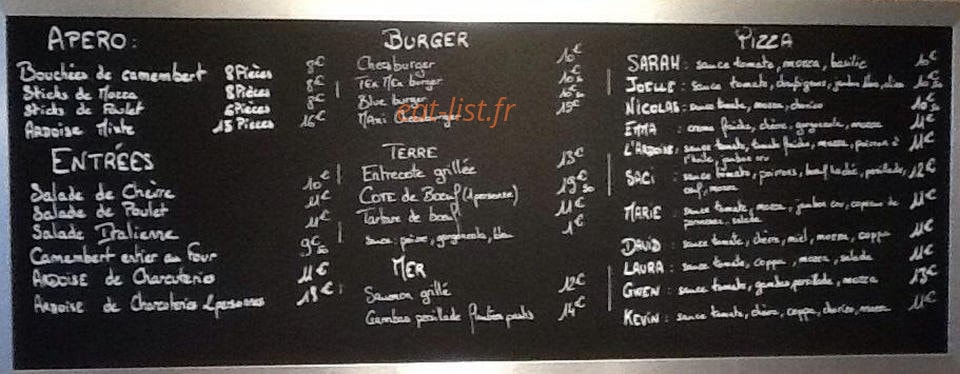 APERO:
Bouchées de camembert 8 Pièces 9€
Sticks de Mozza 8 Pièces 8€
Sticks de Poulet 6 Pièces 8€
ARDOISE Mixte 15 Pieces 16€
ENTRÉES
Salade de Chèvre 10€
Salade de Poulet 11€
Salade Italienne 11€
Camembert entier au Four 9€50
ARDOISE de Charcuterie 11€
Ardoise de Charcuteries 2 personnes 18€
BURGER
Cheesburger 10€
TEX MEX burger 10€50
Blue burger 10€50
MAxi Cheesburger 15€
eat-list.fr
TERRE
Entrecote grillée 13€
COTE DE BOEUF (1 personne) 19€50
Tartare de boeuf 11€
sauce: poivre, gorgonzola, bleu 1€
MER
Saumon grillé 12€
Gambas persillade 14€
PIZZA
SARAH: sauce tomate, mozza, basilic 10€
JOELLE: sauce tomate, champignons, jambon blanc, 10€50
NICOLAS: sauce tomate, mozza, chorizo 10€50
EMMA: creme fraîche, chèvre, gorgonzola, mozza 11€
L'ARDOISE: sauce tomate, tomate fraîche, mozza, poivrons à
l'huile, jambon cru 11€
SACi: sauce tomate, poivrons, boeuf haché, persillade, 12€
oeuf, mozza
MARIE: sauce tomate, mozza, jambon cru, copeaux de 11€
parmesan, salade
DAVID: sauce tomate, chèvre, miel, mozza, coppa 11€
LAURA: sauce tomate, coppa, mozza, salade 11€
GWEN: sauce tomate, gambas persillade, mozza 13€
KEVIN: sauce tomate, chèvre, coppa, chorizo, mozza 11€